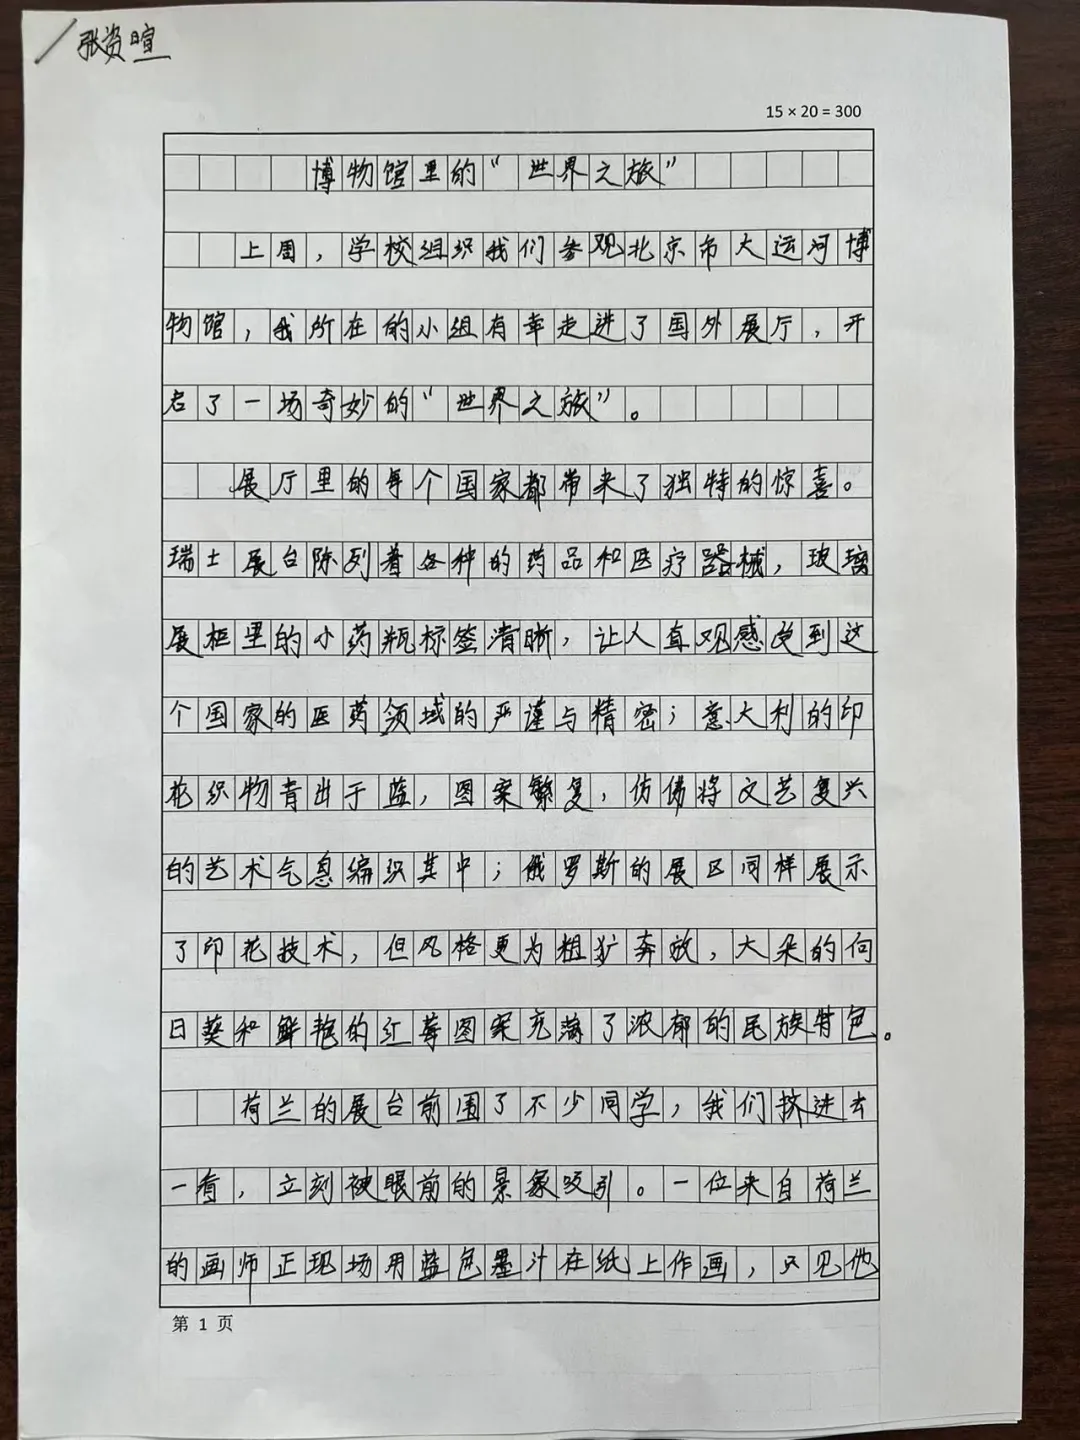 张资暄
15 × 20 = 300
博物馆里的“世界之旅”
上周，学校组织我们参观北京市大运河博
物馆，我所在的小组有幸走进了国外展厅，开
启了一场奇妙的“世界之旅”。
展厅里的每个国家都带来了独特的惊喜。
瑞士展台陈列着各种的药品和医疗器械，玻璃
展柜里的小药瓶标签清晰，让人直观感受到这
个国家的医药领域的严谨与精密；意大利的印
花织物青出于蓝，图案繁复，仿佛将文艺复兴
的艺术气息编织其中；俄罗斯的展区同样展示
了印花技术，但风格更为粗犷奔放，大朵的向
日葵和鲜艳的红莓图案充满了浓郁的民族特色。
荷兰的展台前围了不少同学，我们挤进去
一看，立刻被眼前的景象吸引。一位来自荷兰
的画师正现场用蓝色墨汁在纸上作画，只见他
第 1 页